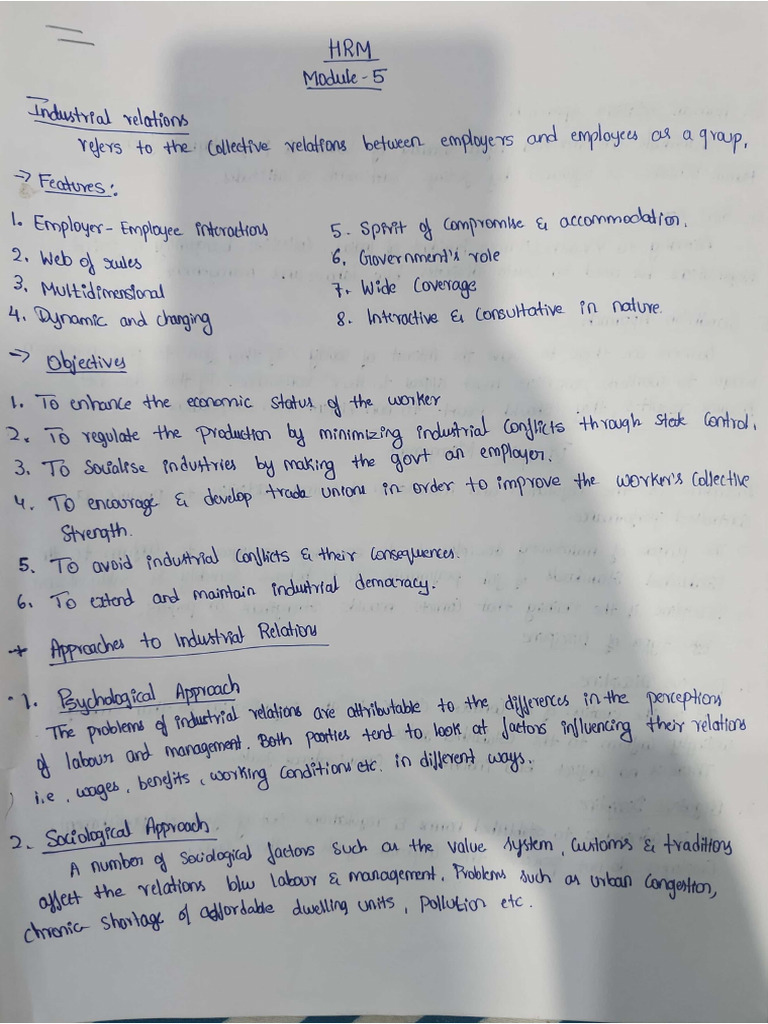 HRM
Module-5
Industrial relations
refers to the collective relations between employers and employees as a group.
→ Features:
1. Employer-Employee interactions
2. Web of rules
3. Multidimensional
4. Dynamic and changing
5. Spirit of compromise & accommodation.
6. Government's role
7. Wide Coverage
8. Interactive & Consultative in nature.
→ Objectives
1. To enhance the economic status of the worker
2. To regulate the production by minimizing industrial conflicts through state control.
3. To Socialise industries by making the govt an employer.
4. To encourage & develop trade unions in order to improve the worker's collective
Strength.
5. To avoid industrial conflicts & their consequences.
6. To extend and maintain industrial democracy.
→ Approaches to Industrial Relations
1. Psychological Approach
The problems of industrial relations are attributable to the differences in the perceptions
of labour and management. Both parties tend to look at factors influencing their relations
i.e, wages, benefits, working conditions etc. in different ways.
2. Sociological Approach.
A number of sociological factors such as the value system, customs & traditions
affect the relations b/w labour & management. Problems such as urban congestion,
chronic shortage of affordable dwelling units, pollution etc.